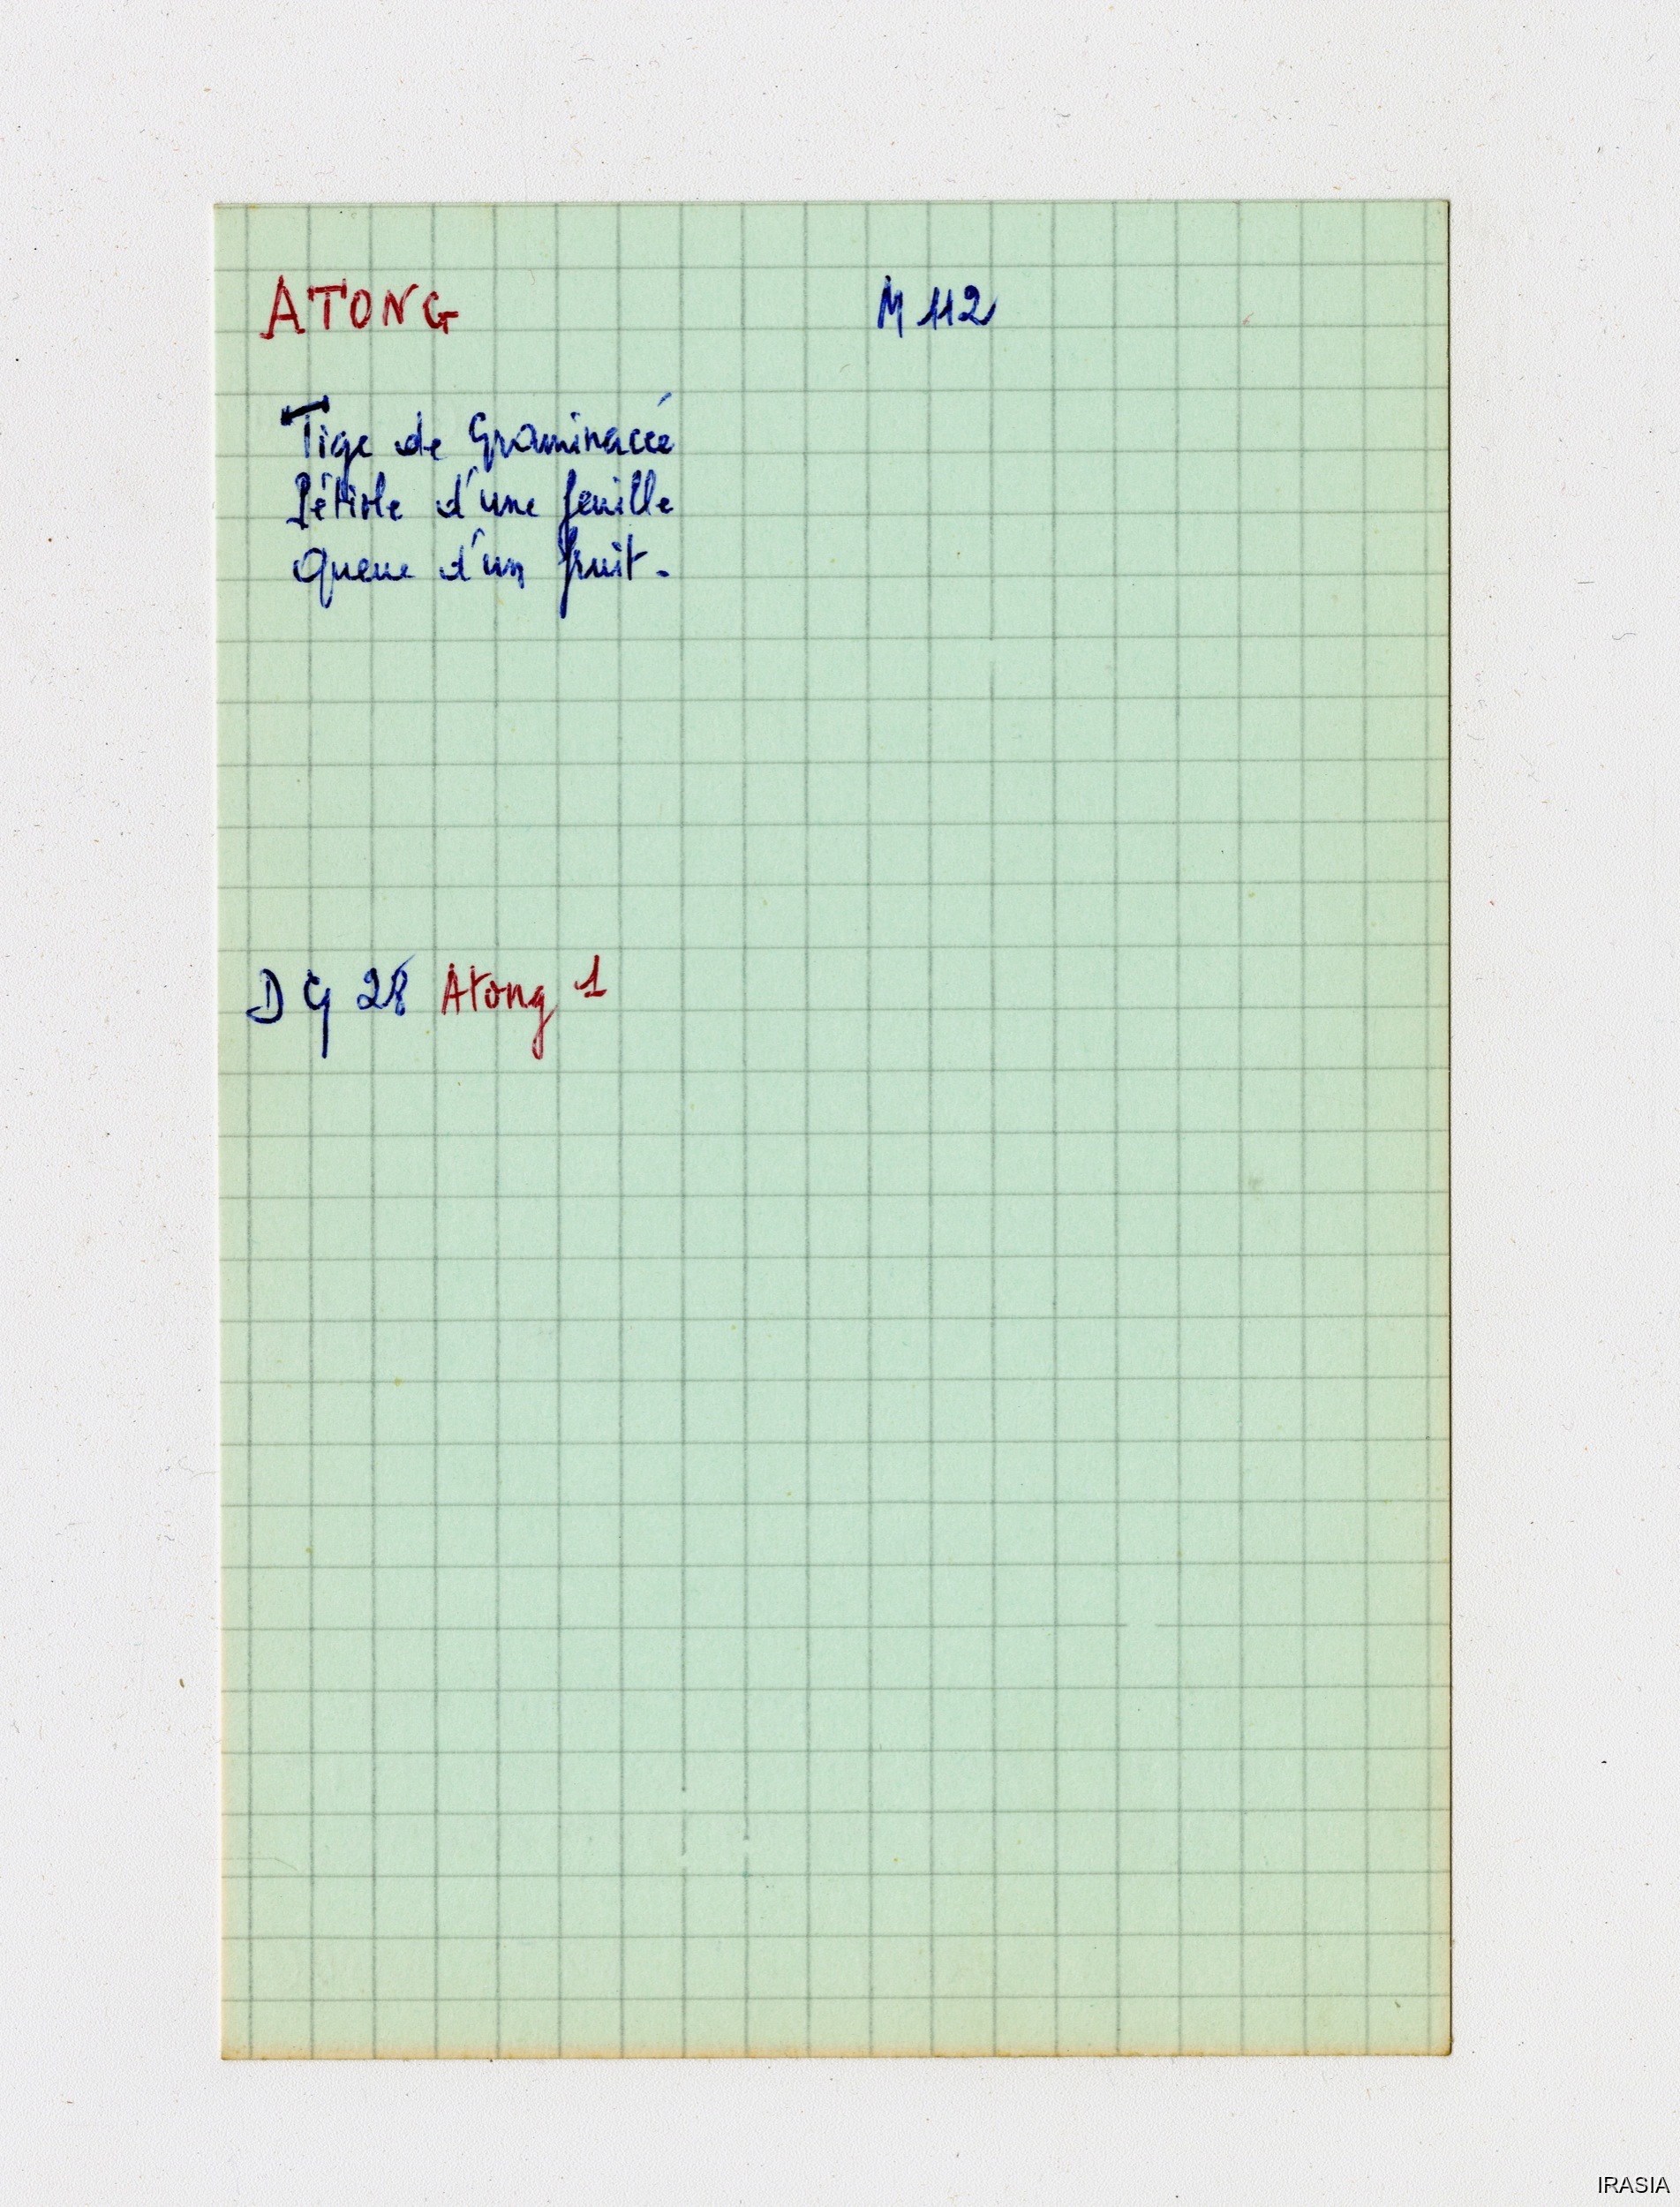 ATONG M 112
Tige de Graminacée
Pétiole d'une feuille
Queue d'un fruit.
D G 28 Atong 1
IRASIA